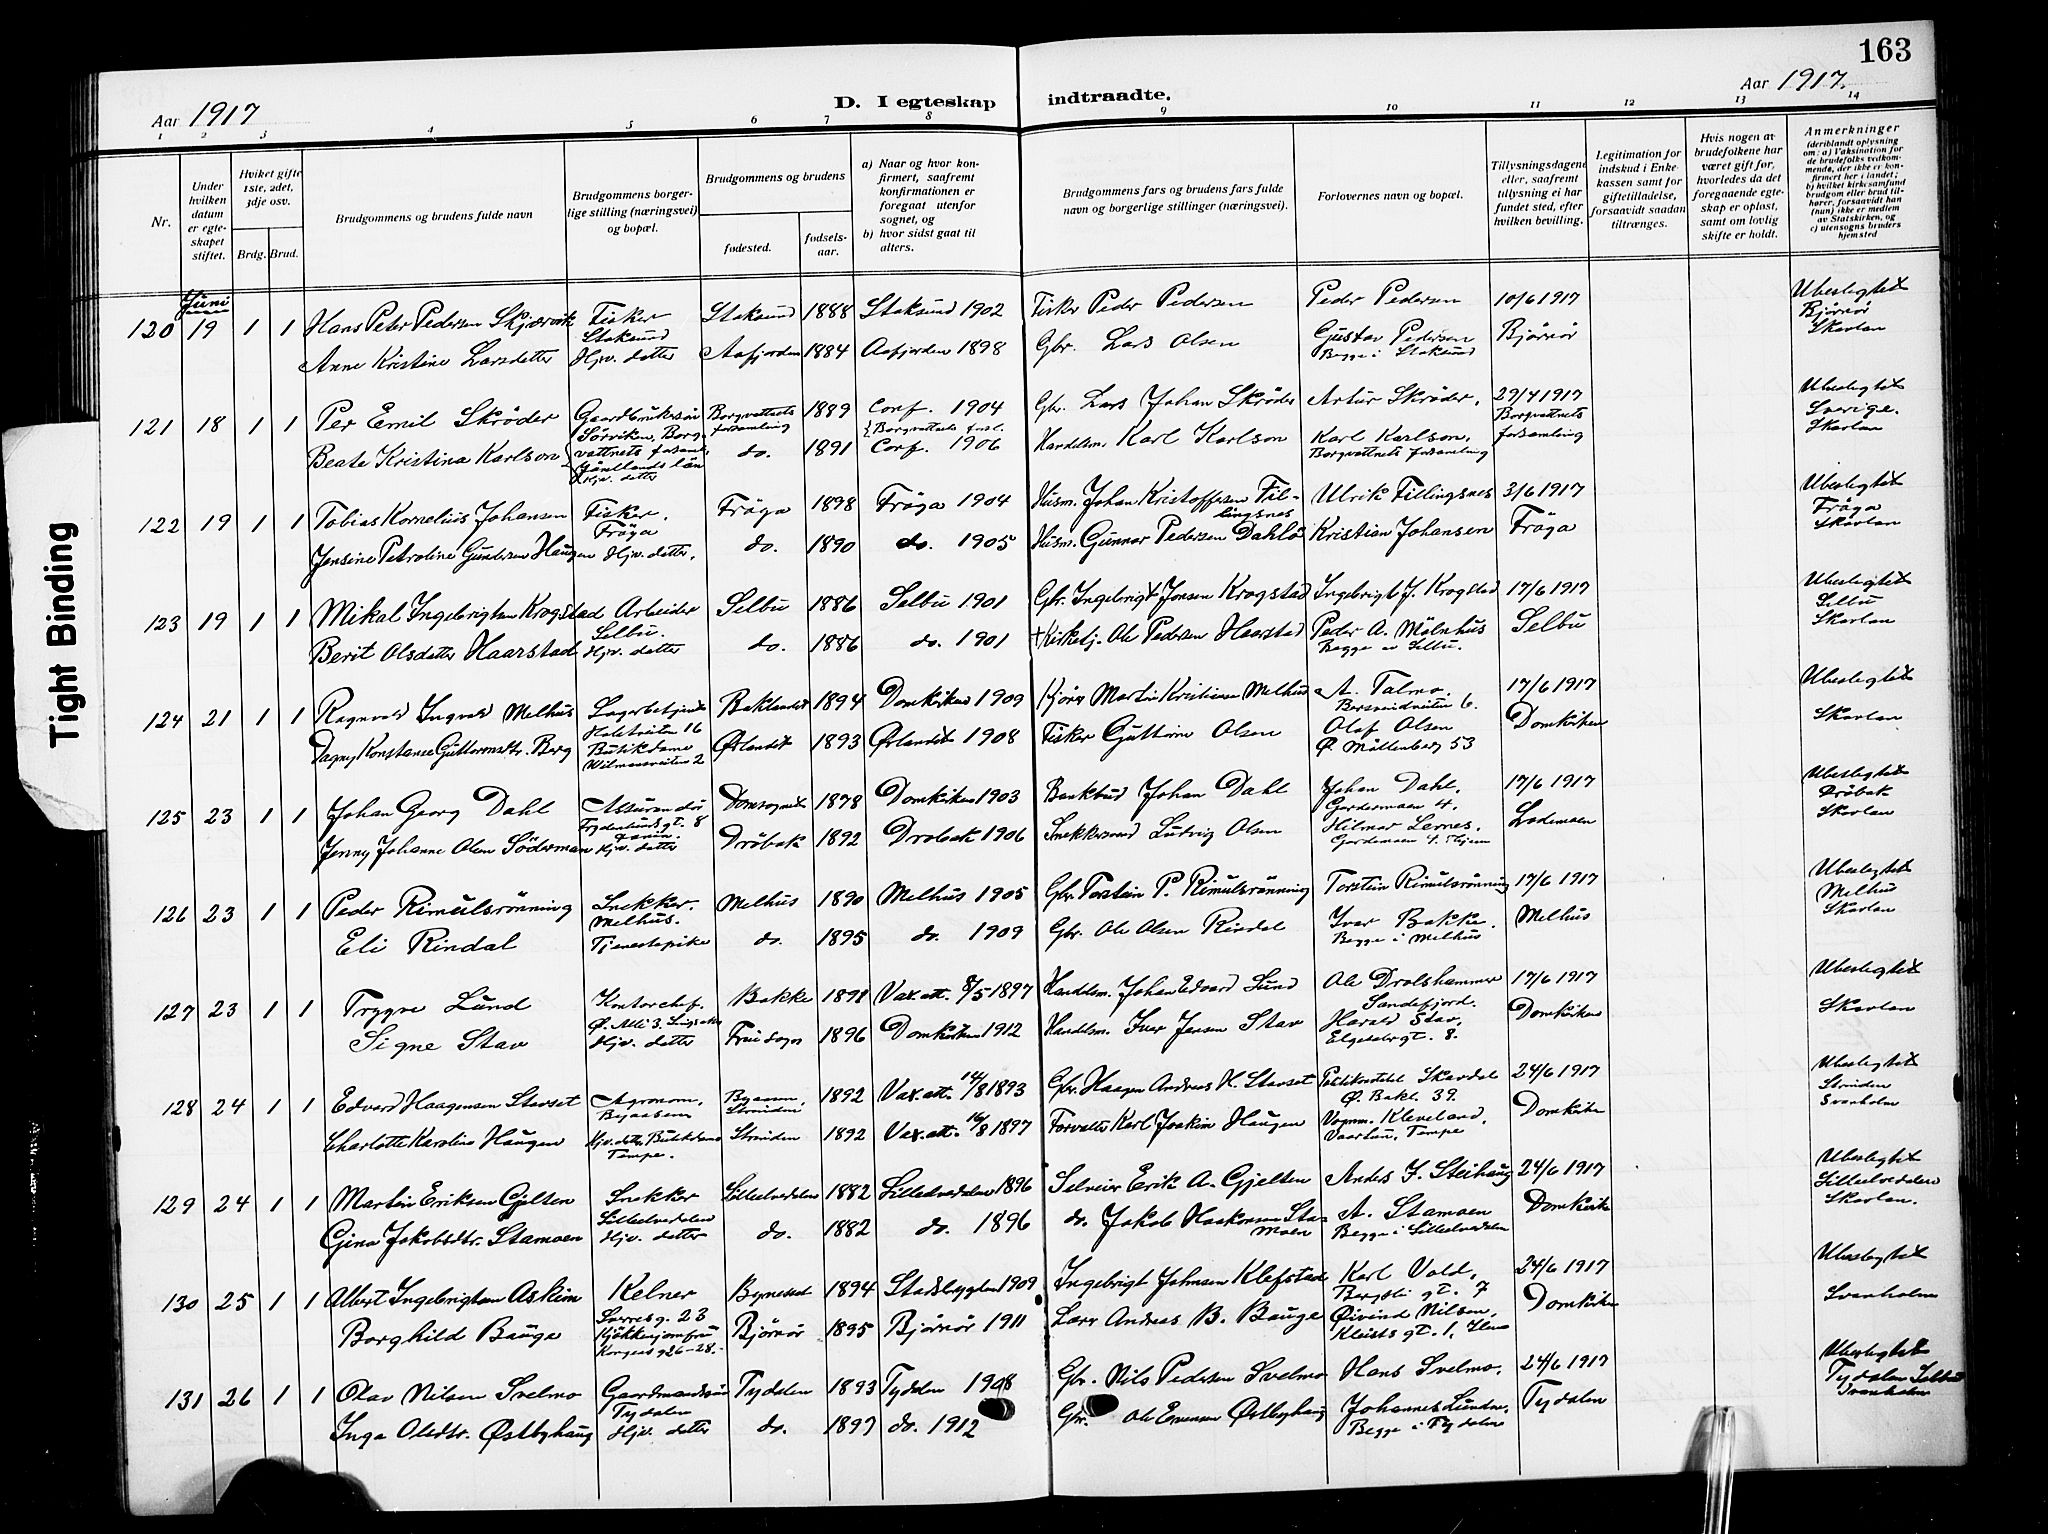 163
Aar 1917
D. I egteskap indtraadte.
Aar 1917.
1 2 3 4 5 6 7 8 9 10 11 12 13 14
Nr.
Under hvilken datum er egteskapet stiftet.
Hvilket gifte 1ste, 2det, 3dje osv.
Brdg. Brud.
Brudgommens og brudens fulde navn
Brudgommens borgerlige stilling (næringsvei) og bopæl.
Brudgommens og brudens
fødested.
fødselsaar.
a) Naar og hvor konfirmert, saafremt konfirmationen er foregaat utenfor sognet, og
b) hvor sidst gaat til alters.
Brudgommens fars og brudens fars fulde navn og borgerlige stillinger (næringsvei).
Forlovernes navn og bopæl.
Tillysningsdagene eller, saafremt tillysning ei har fundet sted, efter hvilken bevilling.
Legitimation for indskud i Enkekassen samt for giftetilladelse, forsaavidt saadan tiltrænges.
Hvis nogen av brudefolkene har været gift før, hvorledes da det foregaaende egteskap er opløst, samt om lovlig skifte er holdt.
Anmerkninger (deriblandt oplysning om: a) Vaksination for de brudefolks vedkommende, der ikke er konfirmert her i landet; b) hvilket kirkesamfund brudgom eller brud tilhører, forsaavidt han (hun) ikke er medlem av Statskirken, og c) utensogns bruders hjemsted
Juni
120 19 1 1 Hans Peter Pedersen Skjærvik Fisker Stoksund Stoksund 1888 Stoksund 1902 Fisker Peder Pedersen Peder Pedersen 10/6 1917 Ubeslegtet Bjørnør
Anne Kristine Larsdatter Hjv. datter Aafjorden 1884 Aafjorden 1898 Gbr. Lars Olsen Gustav Pedersen Begge i Stoksund Bjørnør Skavlan
121 18 1 1 Per Emil Skröder Gaardbrukersön Sörviken, Borgvattnets forsaml. Borgvattnets forsamling 1889 Conf. 1904 Gbr. Lars Johan Skröder Artur Skröder. 29/4 1917 Ubeslegtet Sverige.
Beate Kristina Karlson Jämtlands län Hjv. datter do. 1891 Conf. 1906 Handelsm. Karl Karlson Karl Karlson. Borgvattnets forsamling Borgvattnets forsamling Skavlan
122 19 1 1 Tobias Kornelius Johansen Fisker. Fröya Fröya 1898 Fröya 1904 Husm. Johan Kristoffersen Fillingsnes Ulrik Fillingsnes 3/6 1917 Ubeslegtet Fröya
Jensine Petroline Gundersen Haugen Hjv. datter. do. 1890 do. 1905 Husm. Gunnar Pedersen Dahlö Kristian Johansen Fröya Skavlan
123 19 1 1 Mikal Ingebrigtsen Krogstad Arbeider Selbu. Selbu 1886 Selbu 1901 Gbr. Ingebrigt Jensen Krogstad Ingebrigt J. Krogstad 17/6 1917 Ubeslegtet Selbu
Berit Olsdatter Haarstad Hjv. datter do. 1886 do. 1901 † Kirketj. Ole Pedersen Haarstad Peder A. Mölnhus Begge av Selbu. Selbu Skavlan
124 21 1 1 Ragnvald Ingvald Melhus Lagerbetjent 16 Baklandet 1894 Domkirken 1909 Kjörer Martin Kristian Melhus A. Talmo. 6. 17/6 1917 Ubeslegtet
Dagny Konstanse Guttormsdtr. Berg Butikdame 2 Ørlandet 1893 Ørlandet 1908 Fisker Guttorm Olsen Olaf Olsen Ø. Möllenberg 53 Domkirken Skavlan
125 23 1 1 Johan Georg Dahl Assurandör 8 Domsognet 1878 Domkirken 1903 Bankbud Johan Dahl Johan Dahl. Gardemoen 4. 17/6 1917 Ubeslegtet Drøbak
Jenny Johanne Olsen Söderman Hjv. datter Drøbak 1892 Drøbak 1906 Snekkersvend Ludvig Olsen Hilmar Lernes. Gardemoen 4. Lademoen Skavlan
126 23 1 1 Peder Rimulsrönning Snekker. Melhus. Melhus 1890 Melhus 1905 Gbr. Torstein P. Rimulsrönning Torstein Rimulsrönning 17/6 1917 Ubeslegtet Melhus
Eli Rindal Tjenestepike do. 1895 do. 1909 Gbr. Ole Olsen Rindal Iver Bakke. Begge i Melhus Melhus Skavlan
127 23 1 1 Trygve Lund Kontorchef. Ø. Alle 3. Bakke 1891 Vax.att. 8/5 1897 Handelsm. Johan Edvard Lund Ole Drolshammer Sandefjord. 17/6 1917 Ubeslegtet
Signe Stav Hjv. datter Frue sogn 1896 Domkirken 1912 Handelsm. Iver Jensen Stav Harald Stav. Elgesetergt. 8. Domkirken Skavlan
128 24 1 1 Edvard Haagensen Stavset Agronom. Byaasen Byaasen, Strinden 1892 Vax.att. 14/8 1893 Gbr. Haagen Andreas H. Stavset Skardal Ø. Bakl. 39. 24/6 1917 Ubeslegtet Strinden
Charlotte Karoline Haugen Hjv. datter Butikdame Tempe. Strinden 1892 Vax.att. 16/8 1897 Forvalter Karl Joakim Haugen Vognm. Kleveland, Tempe Domkirken Svanholm
129 24 1 1 Martin Eriksen Gjelten Snekker Lilleelvedalen Lilleelvedalen 1882 Lilleelvedalen 1896 Selveier Erik A. Gjelten Anders J. Steihaug 24/6 1917 Ubeslegtet Lilleelvedalen
Gina Jakobsdtr. Stamoen Hjv. datter do. 1882 do. 1896 do. Jakob Haakonsen Stamoen A. Stamoen Begge i Lilleelvedalen Domkirken Skavlan.
130 25 1 1 Albert Ingebrigtsen Askim Kelner 23 Bynesset 1894 Stadsbygden 1909 Ingebrigt Johnsen Klefstad Karl Vold, gt. 7 24/6 1917 Ubeslegtet
Borghild Bauge Kjökkenjomfru Kongensg 26-28. Bjørnör 1895 Bjørnör 1911 Lærer Andreas B. Bauge Øivind Nilsen. gt. 1, Ila Domkirken Svanholm
131 26 1 1 Olav Nilsen Svelmo Gaardmandssön Tydalen Tydalen 1893 Tydalen 1908 Gbr. Nils Pedersen Svelmo Hans Svelmo. 24/6 1917 Ubeslegtet Tydalen Selbu
Inga Olsdtr. Østbyhaug Hjv. datter do. 1897 do. 1912 Gbr. Ole Østbyhaug Johannes Lunden. Begge i Tydalen Tydalen Svanholm
Tight Binding